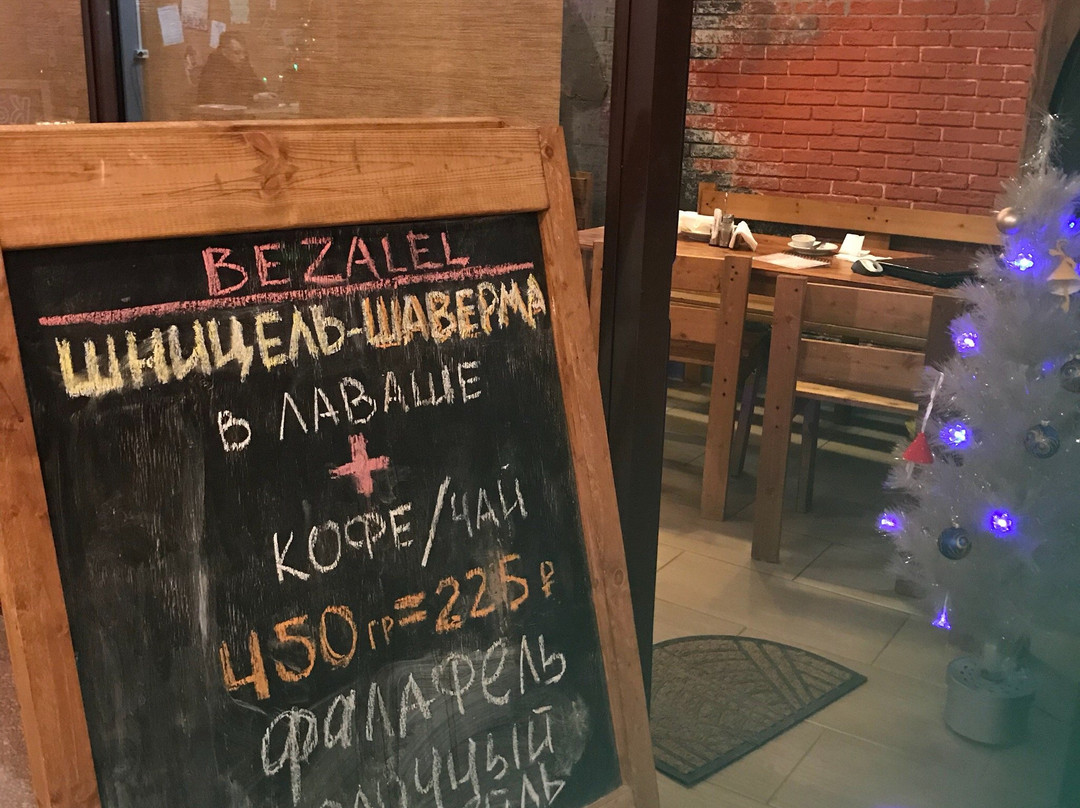 BEZALEL
ШНИЦЕЛЬ-ШАВЕРМА
в ЛАВАШЕ
+
КОФЕ/ЧАЙ
450гр=225₽
ФАЛАФЕЛЬ